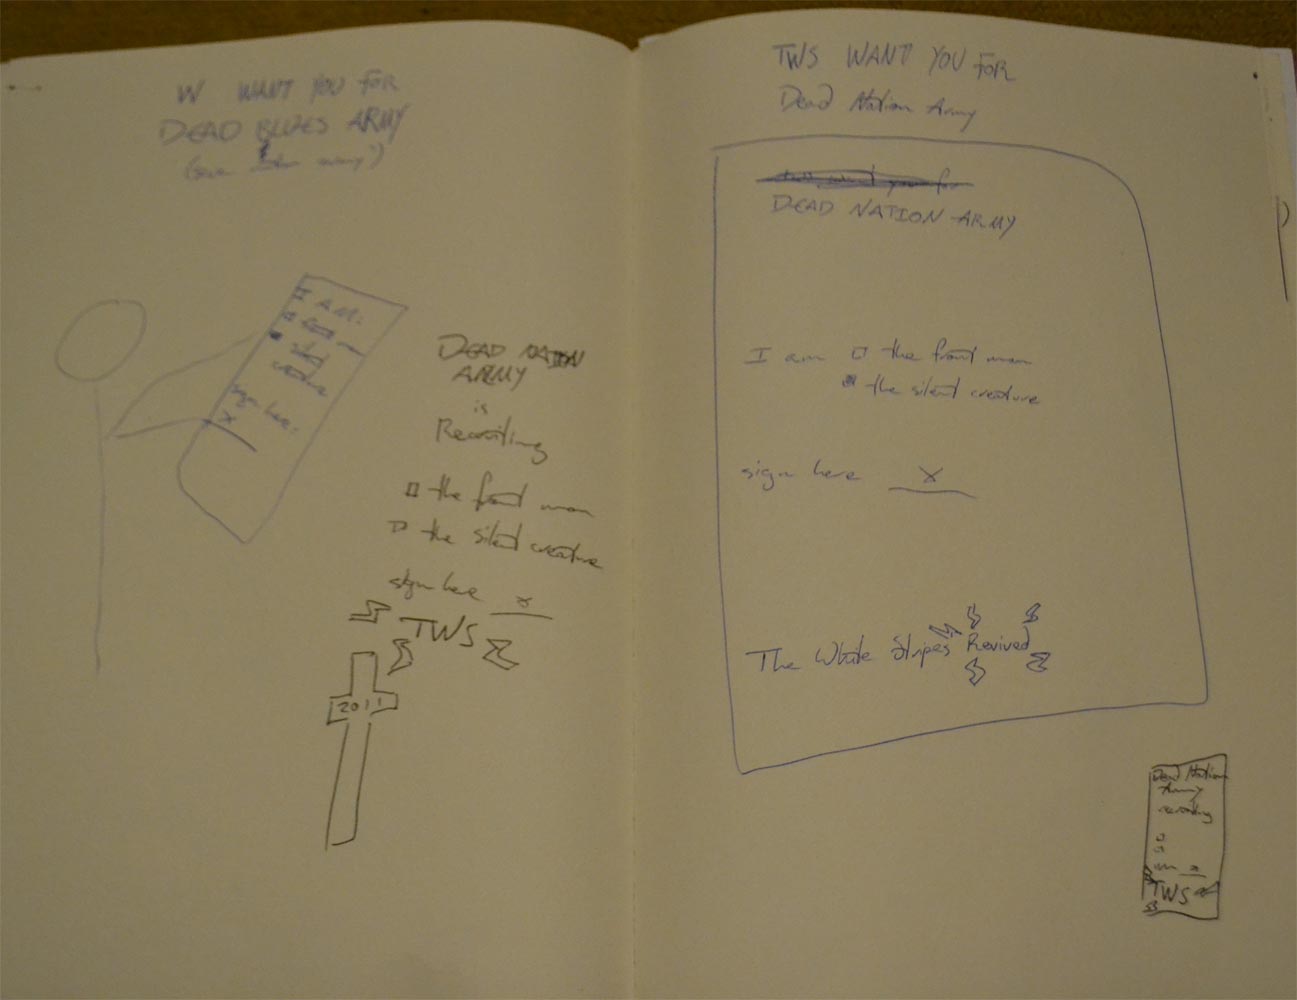 W WANT YOU FOR
DEAD BLUES ARMY
I AM:
front
silent
creature
sign here:
x
DEAD NATION
ARMY
is
Recruiting
the front man
the silent creature
sign here x
TWS
2011
TWS WANT YOU FOR
Dead Nation Army
want you for
DEAD NATION ARMY
I am the front man
the silent creature
sign here x
The White Stripes Revived
Dead Nation
Army
recruiting
x
TWS